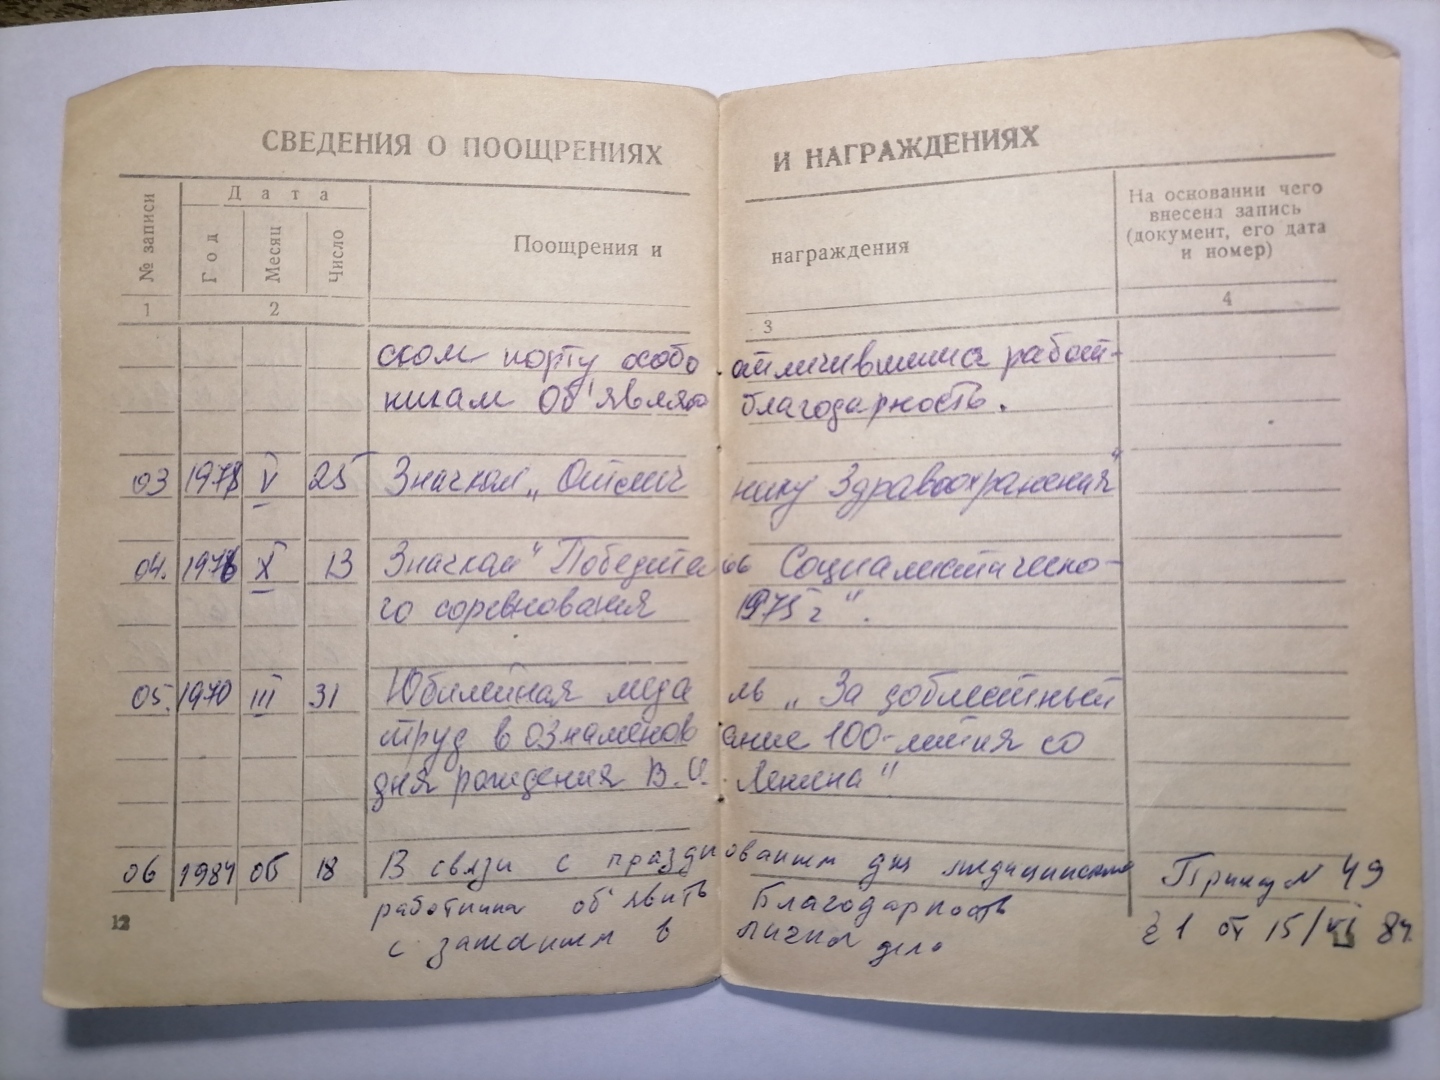 СВЕДЕНИЯ О ПООЩРЕНИЯХ И НАГРАЖДЕНИЯХ
№ записи
Дата
Год
Месяц
Число
Поощрения и награждения
На основании чего
внесена запись
(документ, его дата
и номер)
1 2 3 4
ском порту особо отличившимся работ-
никам об'являю благодарность.
03 1978 V 25 Значком „Отлич нику Здравоохранения"
04. 1976 X 13 Значком "Победитель Социалистическо-
го соревнования 1975 г".
05. 1970 III 31 Юбилейная медаль „За доблестный
труд в ознаменование 100-летия со
дня рождения В.И. Ленина"
06 1984 06 18 В связи с празднованием дня медицинского Приказ N 49
работника об'явить Благодарность от 15/VI 84.
с занесением в личное дело
12